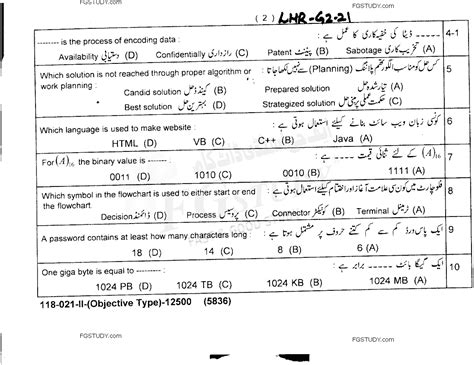 FGSTUDY.com
( 2 ) LHR-G2-21
-------- is the process of encoding data : ڈیٹا کی خفیہ کاری کا عمل ہے : ---- 4-1
Availability دستیابی (D) Confidentially رازداری (C) Patent پیٹنٹ (B) Sabotage تخریب کاری (A)
Which solution is not reached through proper algorithm or work planning : کس حل کو مناسب الگورتھم پلاننگ (Planning) سے نہیں لکھا جاتا : 5
Candid solution کینڈڈ حل (B) Prepared solution تیار شدہ حل (A)
Best solution بہترین حل (D) Strategized solution حکمت عملی پر مبنی حل (C)
Which language is used to make website : کونسی زبان ویب سائٹ بنانے کیلئے استعمال ہوتی ہے : 6
HTML (D) VB (C) C++ (B) Java (A)
For (A)16 the binary value is ------ : (A)16 کے لئے ثنائی قیمت ---- ہے : 7
0011 (D) 1010 (C) 0010 (B) 1111 (A)
Which symbol in the flowchart is used to either start or end the flowchart. فلوچارٹ میں کون سی علامت آغاز اور اختتام کیلئے استعمال ہوتی ہے : 8
Decision ڈائمنڈ (D) Process پروسیس (C) Connector کونیکٹر (B) Terminal ٹرمینل (A)
A password contains at least how many characters long : ایک پاس ورڈ کم سے کم کتنے حروف پر مشتمل ہوتا ہے : 9
18 (D) 14 (C) 8 (B) 6 (A)
One giga byte is equal to --------- : ایک گیگا بائٹ ---- برابر ہے : 10
1024 PB (D) 1024 TB (C) 1024 KB (B) 1024 MB (A)
118-021-II-(Objective Type)-12500 (5836)
FGSTUDY.com
FGSTUDY.com